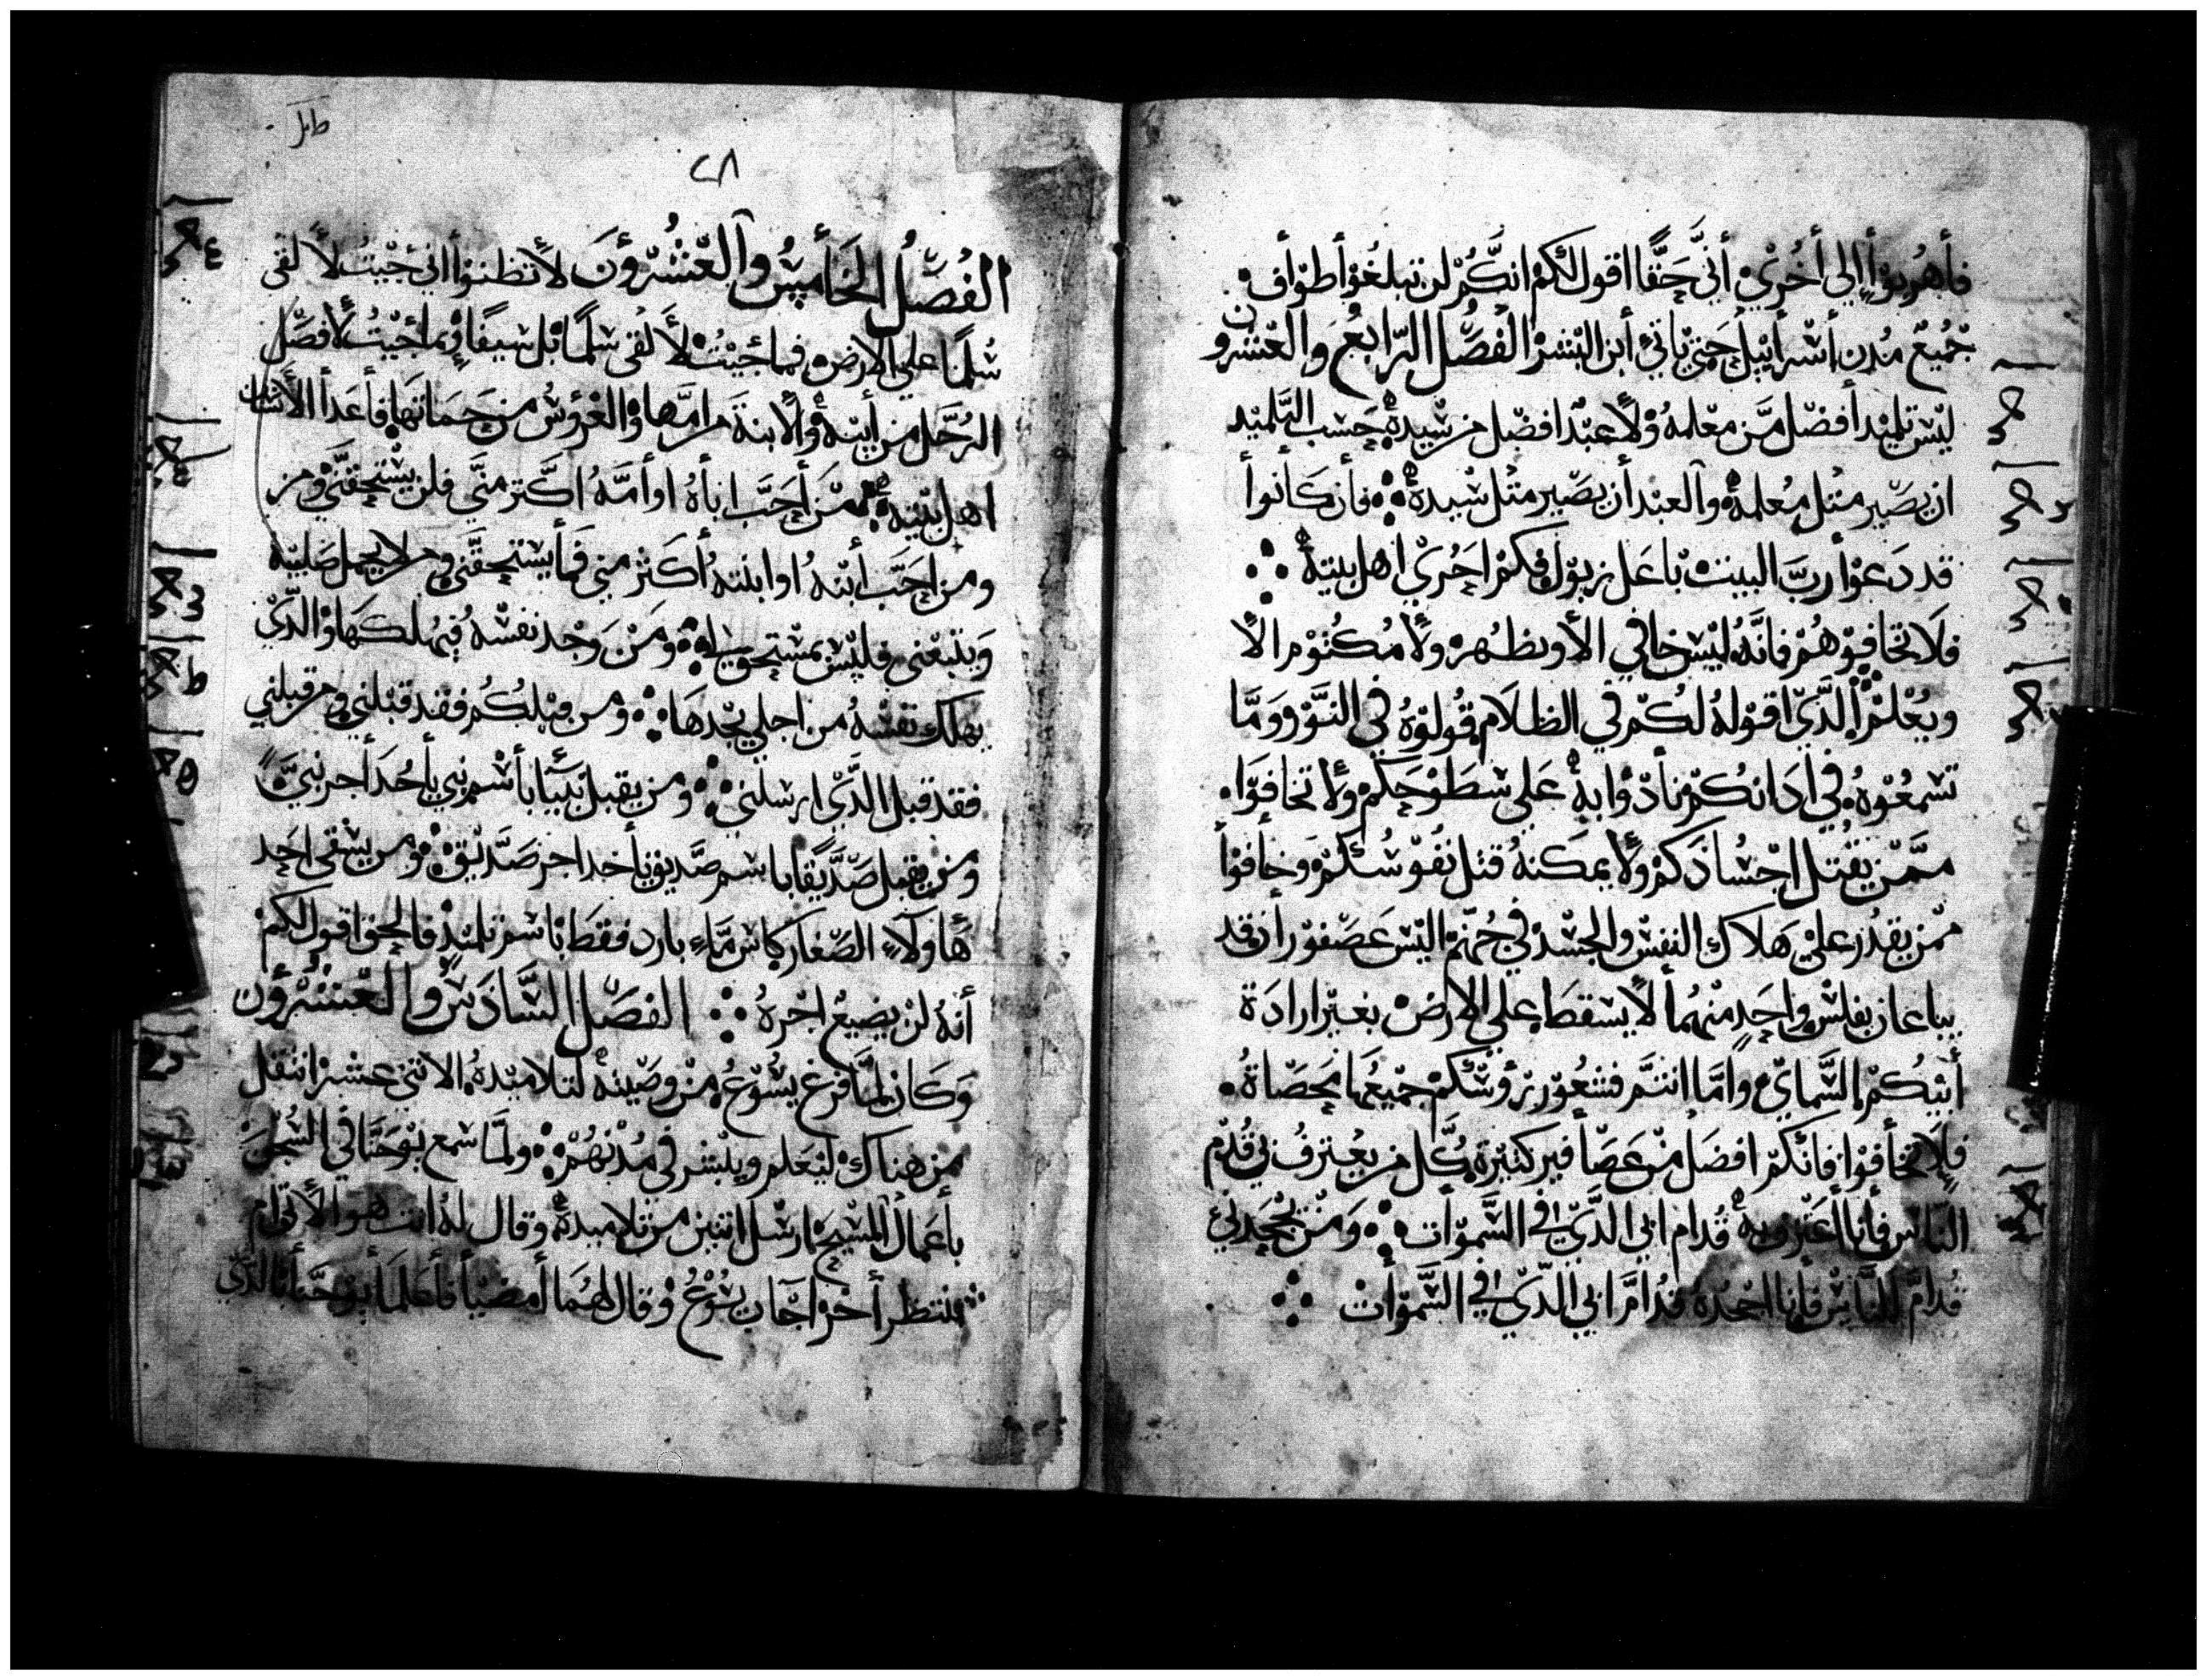 فأهربوا إلى أخرى أني حقا اقول لكم انكم لن تبلغوا أطواف
جميع مدن أسرأييل حتى ياتي أبن البشر الفصل الرابع والعشرون
ليس تليد أفضل من معلمه ولا عبد افضل من سيده حسب التلميد
ان يصير متل معلمه والعبد أن يصير متل سيده فأن كأنوأ
قد دعوا رب البيت باعل زبول فكم احري اهل بيته
فلا تخافوهم فانه ليس خافي الا ويظهر ولا مكتوم الا
ويعلم الدي اقوله لكم في الظلام قولوه في النور وما
تسمعوه في ادانكم نادوا به على سطوحكم ولا تخافوا
ممن يقتل اجسادكم ولا يمكنه قتل نفوسكم وخافوا
ممن يقدر على هلاك النفس والجسد في جهنم اليس عصفوران قد
يباعان بفلس واحد منهما لا يسقط على الارض بغير ارادة
أبيكم السماي واما انتم فشعور رؤسكم جميعها محصاة
فلا تخأفوا فانكم افضل من عصأفير كتيرة كل من يعترف بي قدام
الناس فأنا أعترف به قدام ابي الدي في السموات ومن يجحدني
قدام الناس فأنا اجحده قدام ابي الدي في السموات
طل
٢٨
الفصل الخامس والعشرون لا تظنوا أني جيت لألقي
سلما على الارض فما جيت لألقي سلما بل سيفا وما جيت لأفصل
الرجل من أبيه والابنة من امها والعروس من حماتها فأعدأ الأنسان
اهل بيته من أحب اباه او أمه اكتر مني فلن يستحقني ومن
ومن احب أبنه او ابنته أكتر مني فما يستحقني ومن لا يحمل صليبه
ويتبعني فليس بمستحق لي ومن وجد نفسه فيهلكها والدي
يهلك نفسه من اجلي يجدها ومن قبلكم فقد قبلني ومن قبلني
فقد قبل الدي ارسلني ومن يقبل نبيا بأسم نبي يأحد أجر نبي
ومن يقبل صديقا باسم صديق يأخد اجر صديق ومن يسقي احد
هاولاء الصغار كاس ماء بارد فقط باسم تلميد فالحق اقول لكم
أنه لن يضيع اجره الفصل السادس والعشرون
وكان لما فرغ يسوع من وصيته لتلاميده الاتني عشر انتقل
من هناك ليعلم ويبشر في مدنهم ولما سمع يوحنا في السجن
بأعمال المسيح ارسل اتنين من تلاميده وقال له انت هو الآتي ام
ننتظر أخر اجاب يسوع وقال لهما أمضيا فأعلما يوحنا بالدي